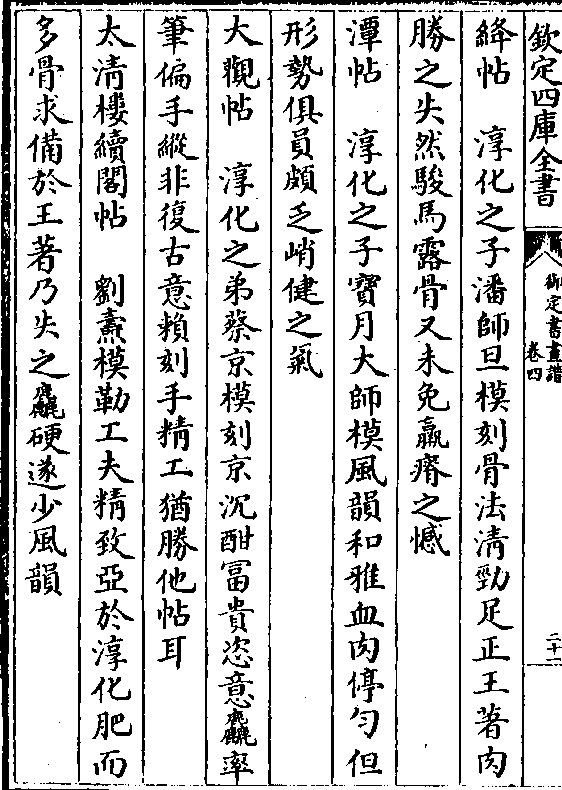 欽定四庫全書
御定書畫譜
卷四
二十一
絳帖　淳化之子潘師旦模刻骨法清勁足正王著肉
勝之失然駿馬露骨又未免羸瘠之憾
潭帖　淳化之子寶月大師模風韻和雅血肉停勻但
形勢俱員頗乏峭健之氣
大觀帖　淳化之弟蔡京模刻京沉酣富貴恣意麤率
筆偏手縱非復古意賴刻手精工猶勝他帖耳
太清樓續閣帖　劉燾模勒工夫精致亞於淳化肥而
多骨求備於王著乃失之麤硬遂少風韻